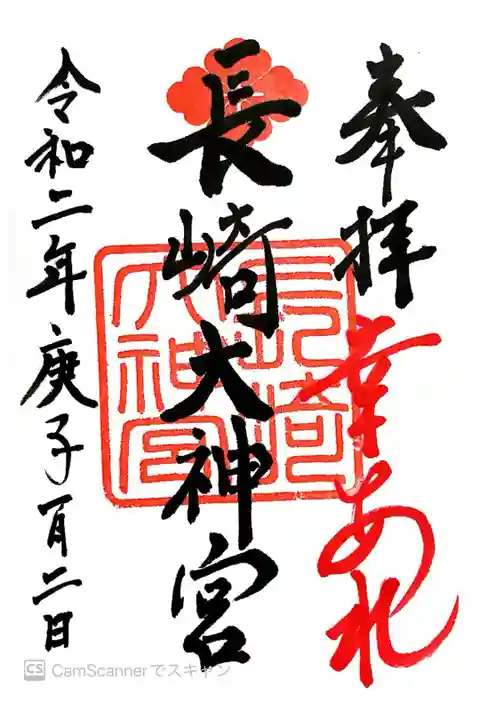 奉拝
幸あれ
長崎大神宮
長崎大神宮
令和二年庚子一月二日
CS CamScannerでスキャン